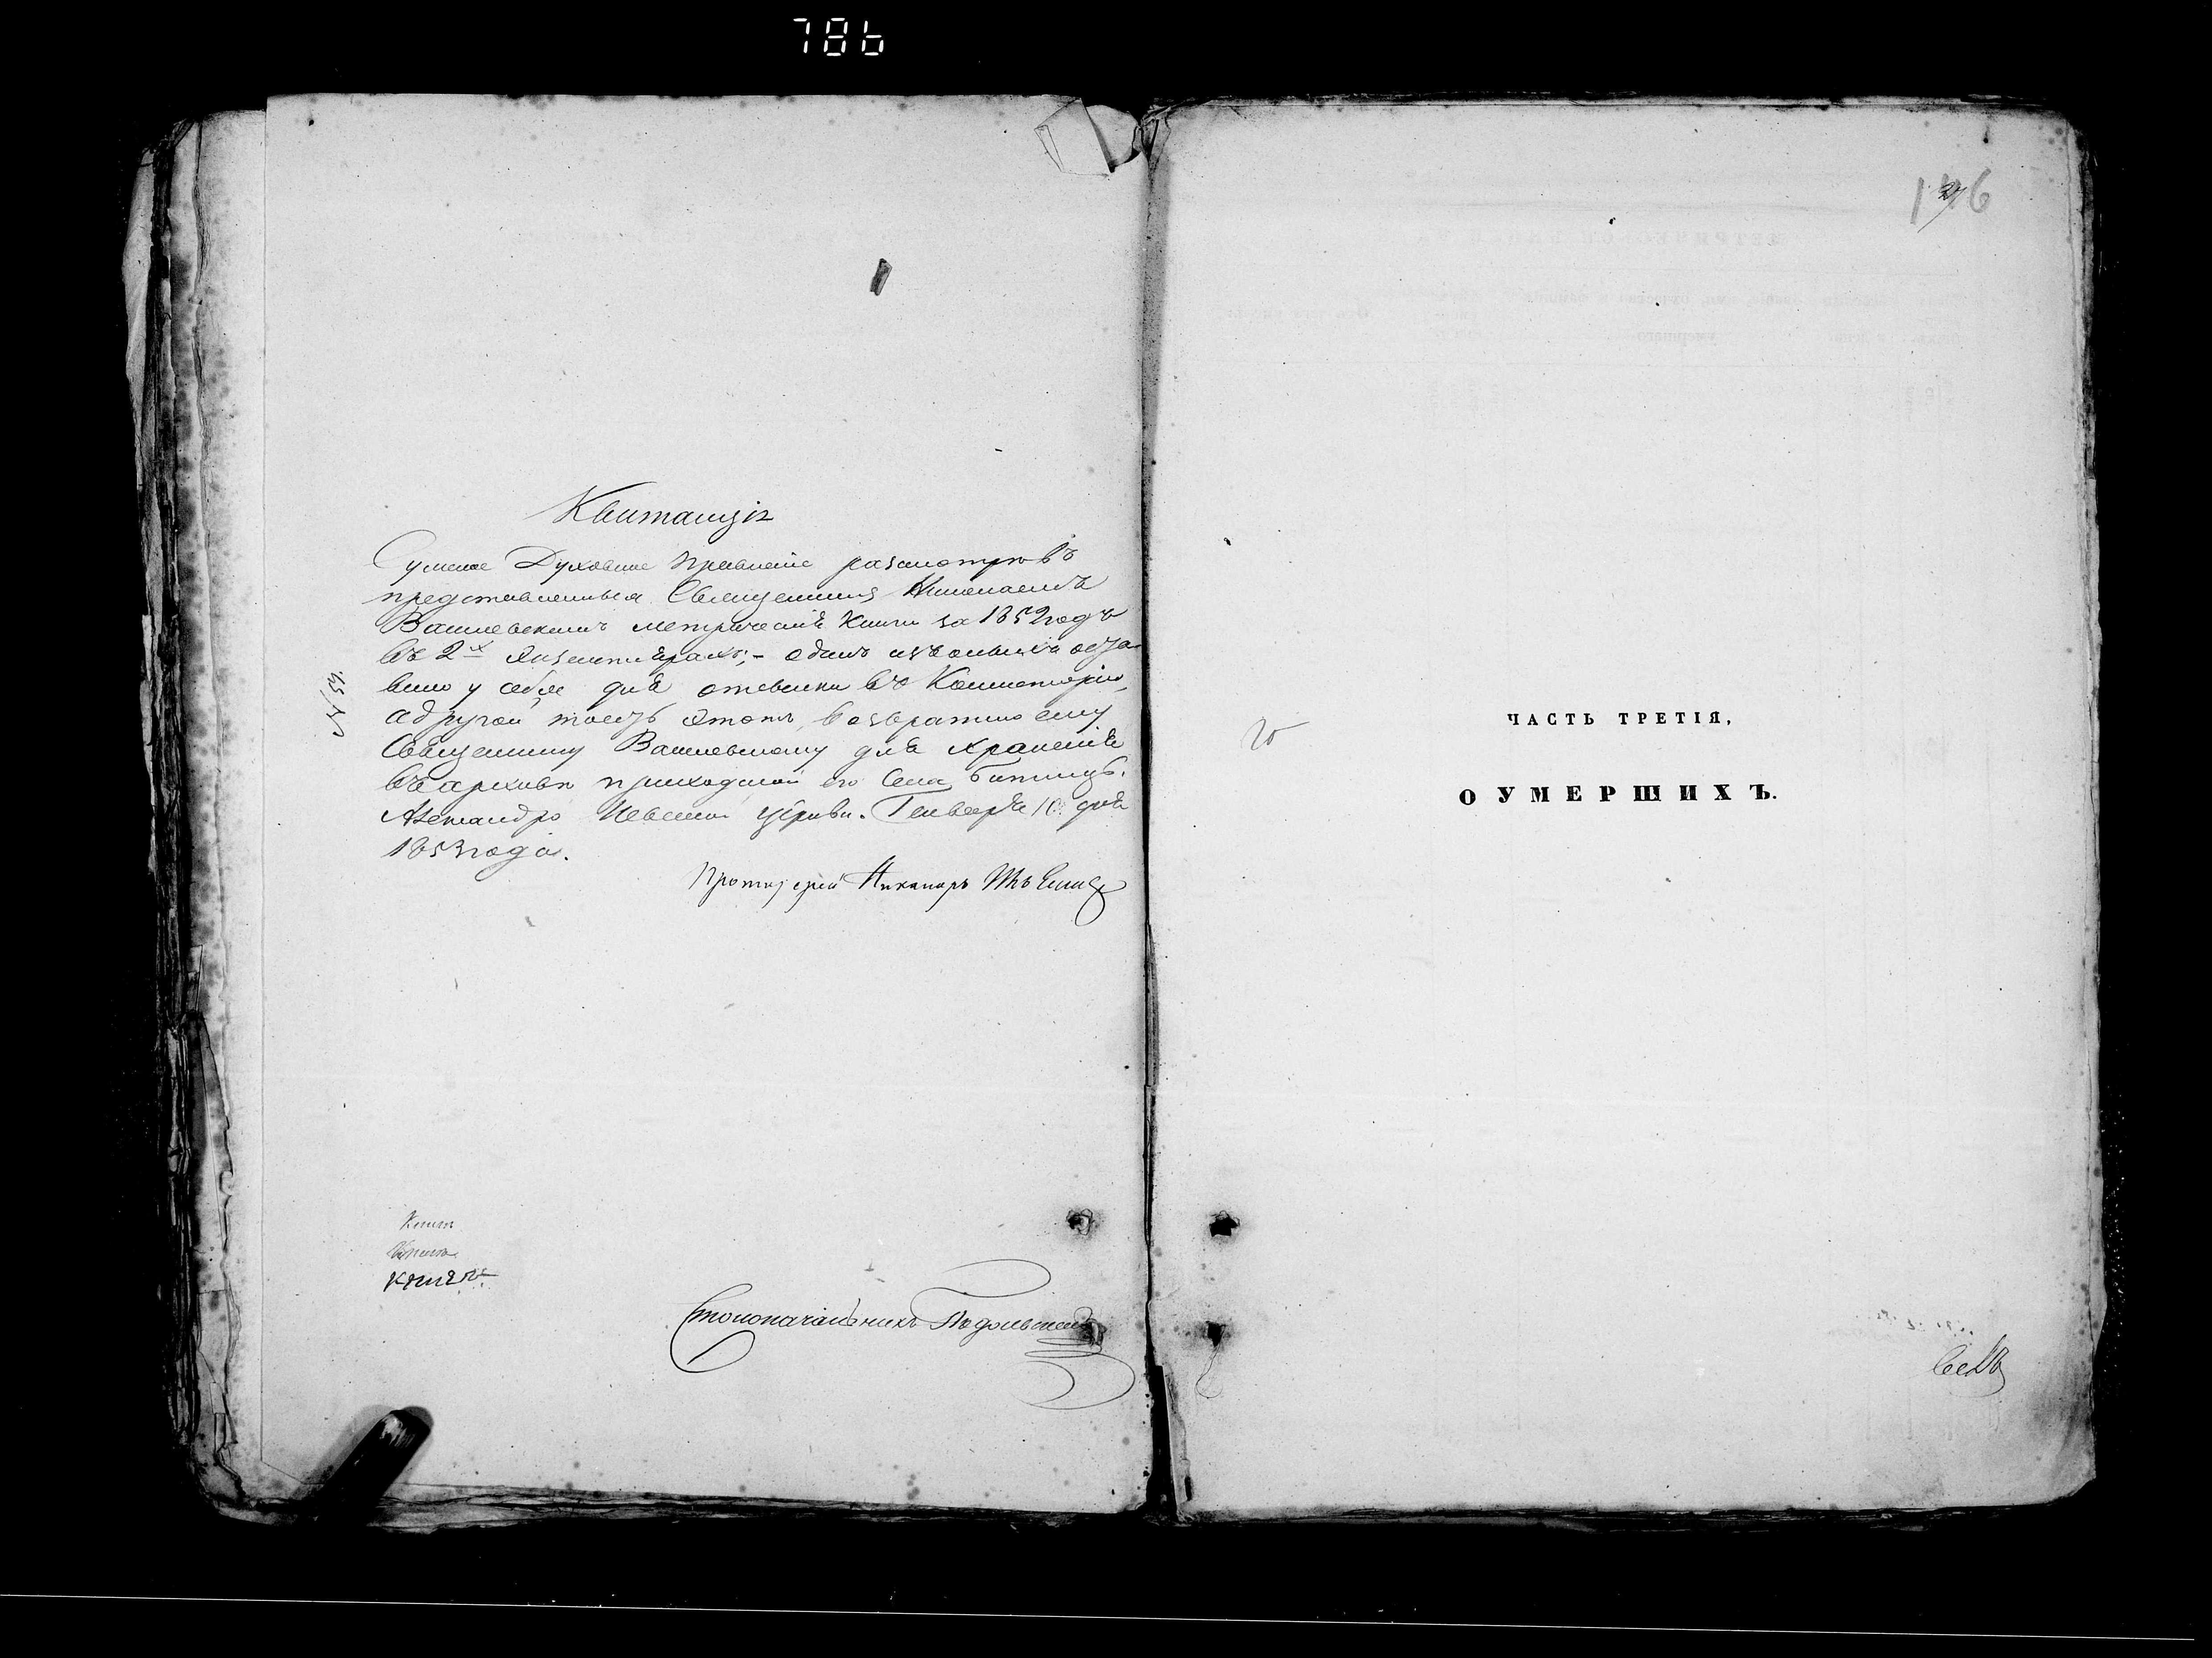 786
Квитанція
Сумское Духовное Правленіе разсмотрѣвъ
представленныя Священникомъ Николаемъ
Метрическія книги за 1852 годъ
въ 2х экземплярахъ; – одинъ изъ оныхъ оста-
вило у себя для отсылки въ Консисторію,
а другой тоесть этотъ, возвратило ему
Священнику для храненія
въ архивѣ приходской его Села Битицѣ,
Александро Невской церкви. Генваря 10. дня
1853 года.
№ 59.
Протоіерей Никаноръ
Книга
Книга
Столоначальникъ
ЧАСТЬ ТРЕТІЯ,
О УМЕРШИХЪ.